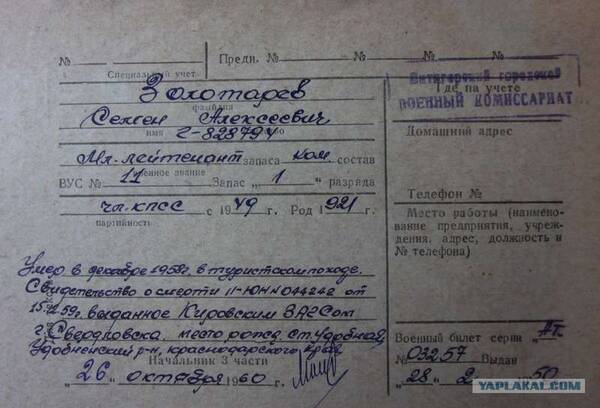 № Предн. № № № №
Специальный учет
Золотарев
фамилия
Семен Алексеевич
имя отчество
Г-828794
Мл. лейтенант запаса ком состав
военное звание
ВУС № 11 Запас „ 1 " разряда
чл. КПСС с 1949 г. Род 1921 г.
партийность
Умер в декабре 1958г. в туристском походе.
Свидетельство о смерти II-ЮН N 044242 от
59г. выданное Кировским ЗАГСом
г. Свердловска. место рожд. ст. Удобная,
Удобненский р-н, Краснодарского края
Начальник 3 части
„ 26 " октября 1960 г.
Пятигорский городской
ВОЕННЫЙ КОМИССАРИАТ
Где на учете
Домашний адрес
Телефон №
Место работы (наименование предприятия, учреждения, адрес, должность и № телефона)
Военный билет серии АТ.
№ 03257 Выдан
„ 28 " 2 50
YAPLAKAL.COM